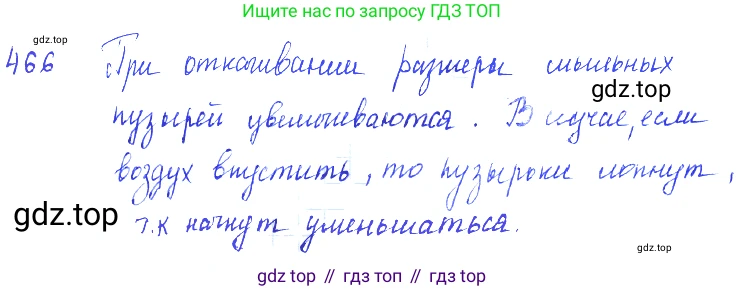 Ищите нас по запросу ГДЗ ТОП
gdz.top
466 При откачивании размеры мыльных
gdz.top
пузырей увеличиваются. В случае, если
воздух впустить, то пузырьки лопнут,
gdz.top
т.к начнут уменьшаться.
gdz.top
gdz top // гдз топ // gdz top // гдз топ